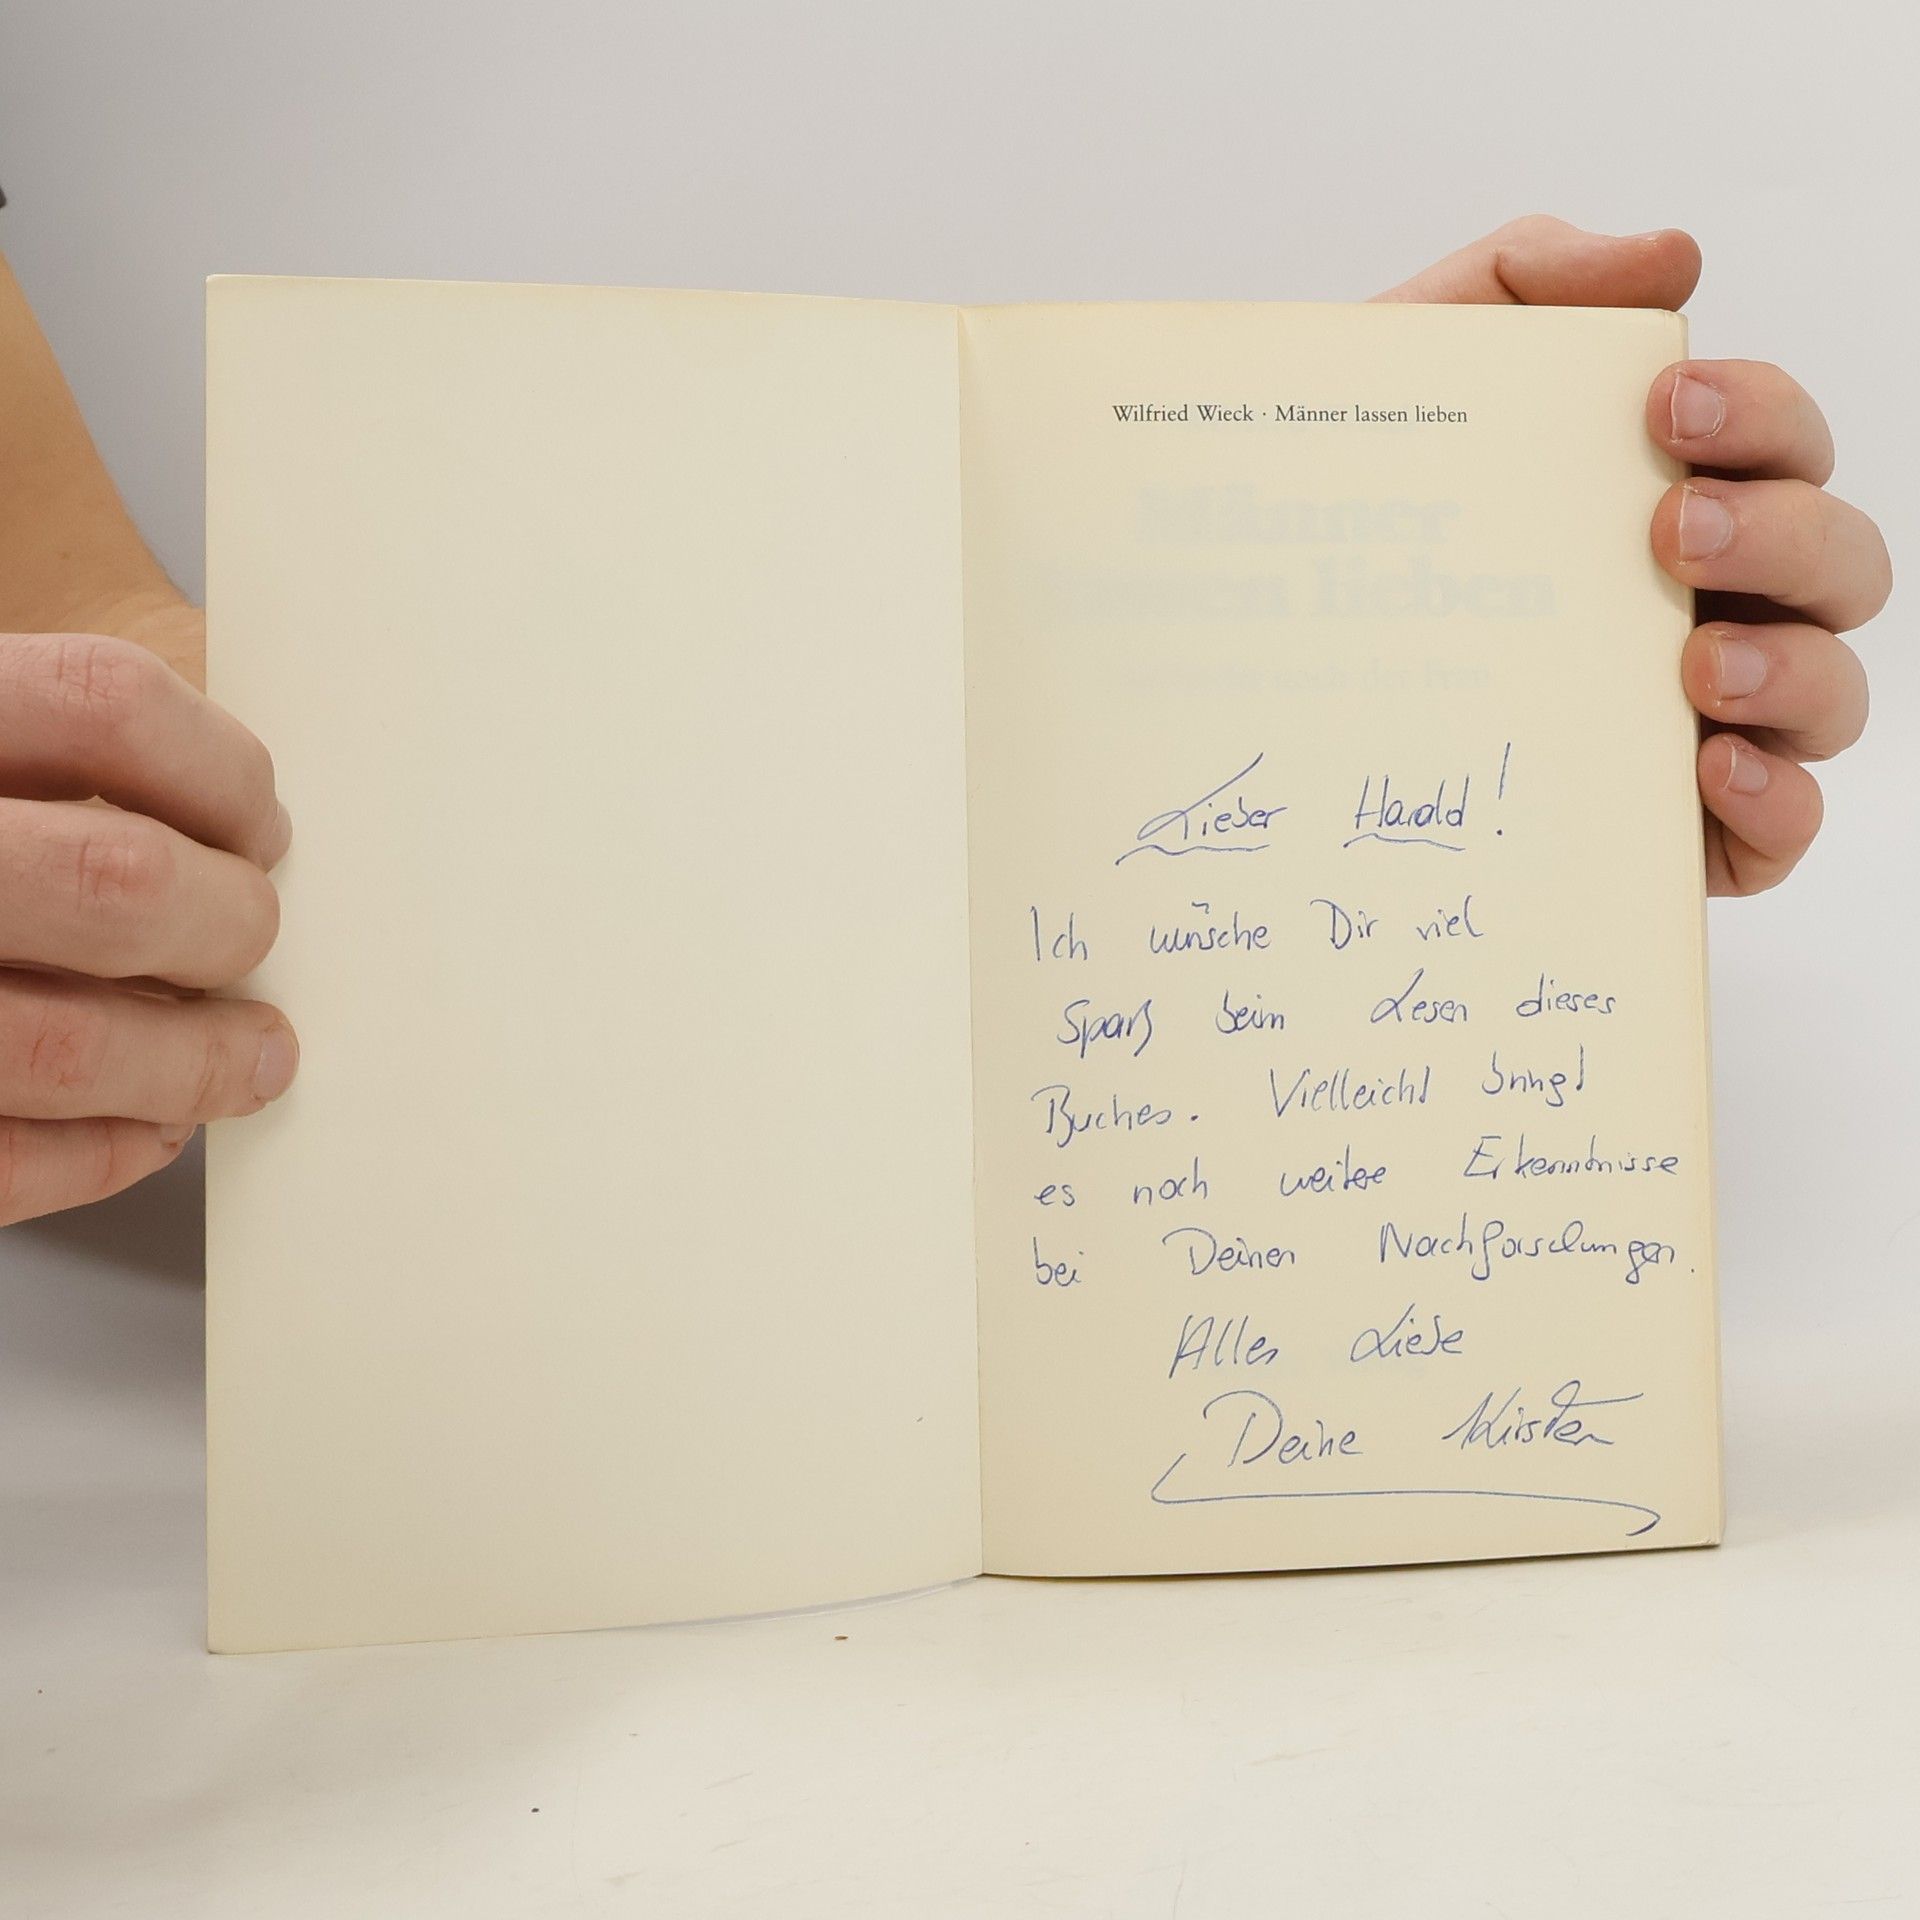 Wilfried Wieck · Männer lassen lieben
Männer
lassen lieben
Lieber Harald!
Ich wünsche Dir viel
Spaß beim Lesen dieses
Buches. Vielleicht bringt
es noch weitere Erkenntnisse
bei Deinen Nachforschungen.
Alles Liebe
Deine Kirsten